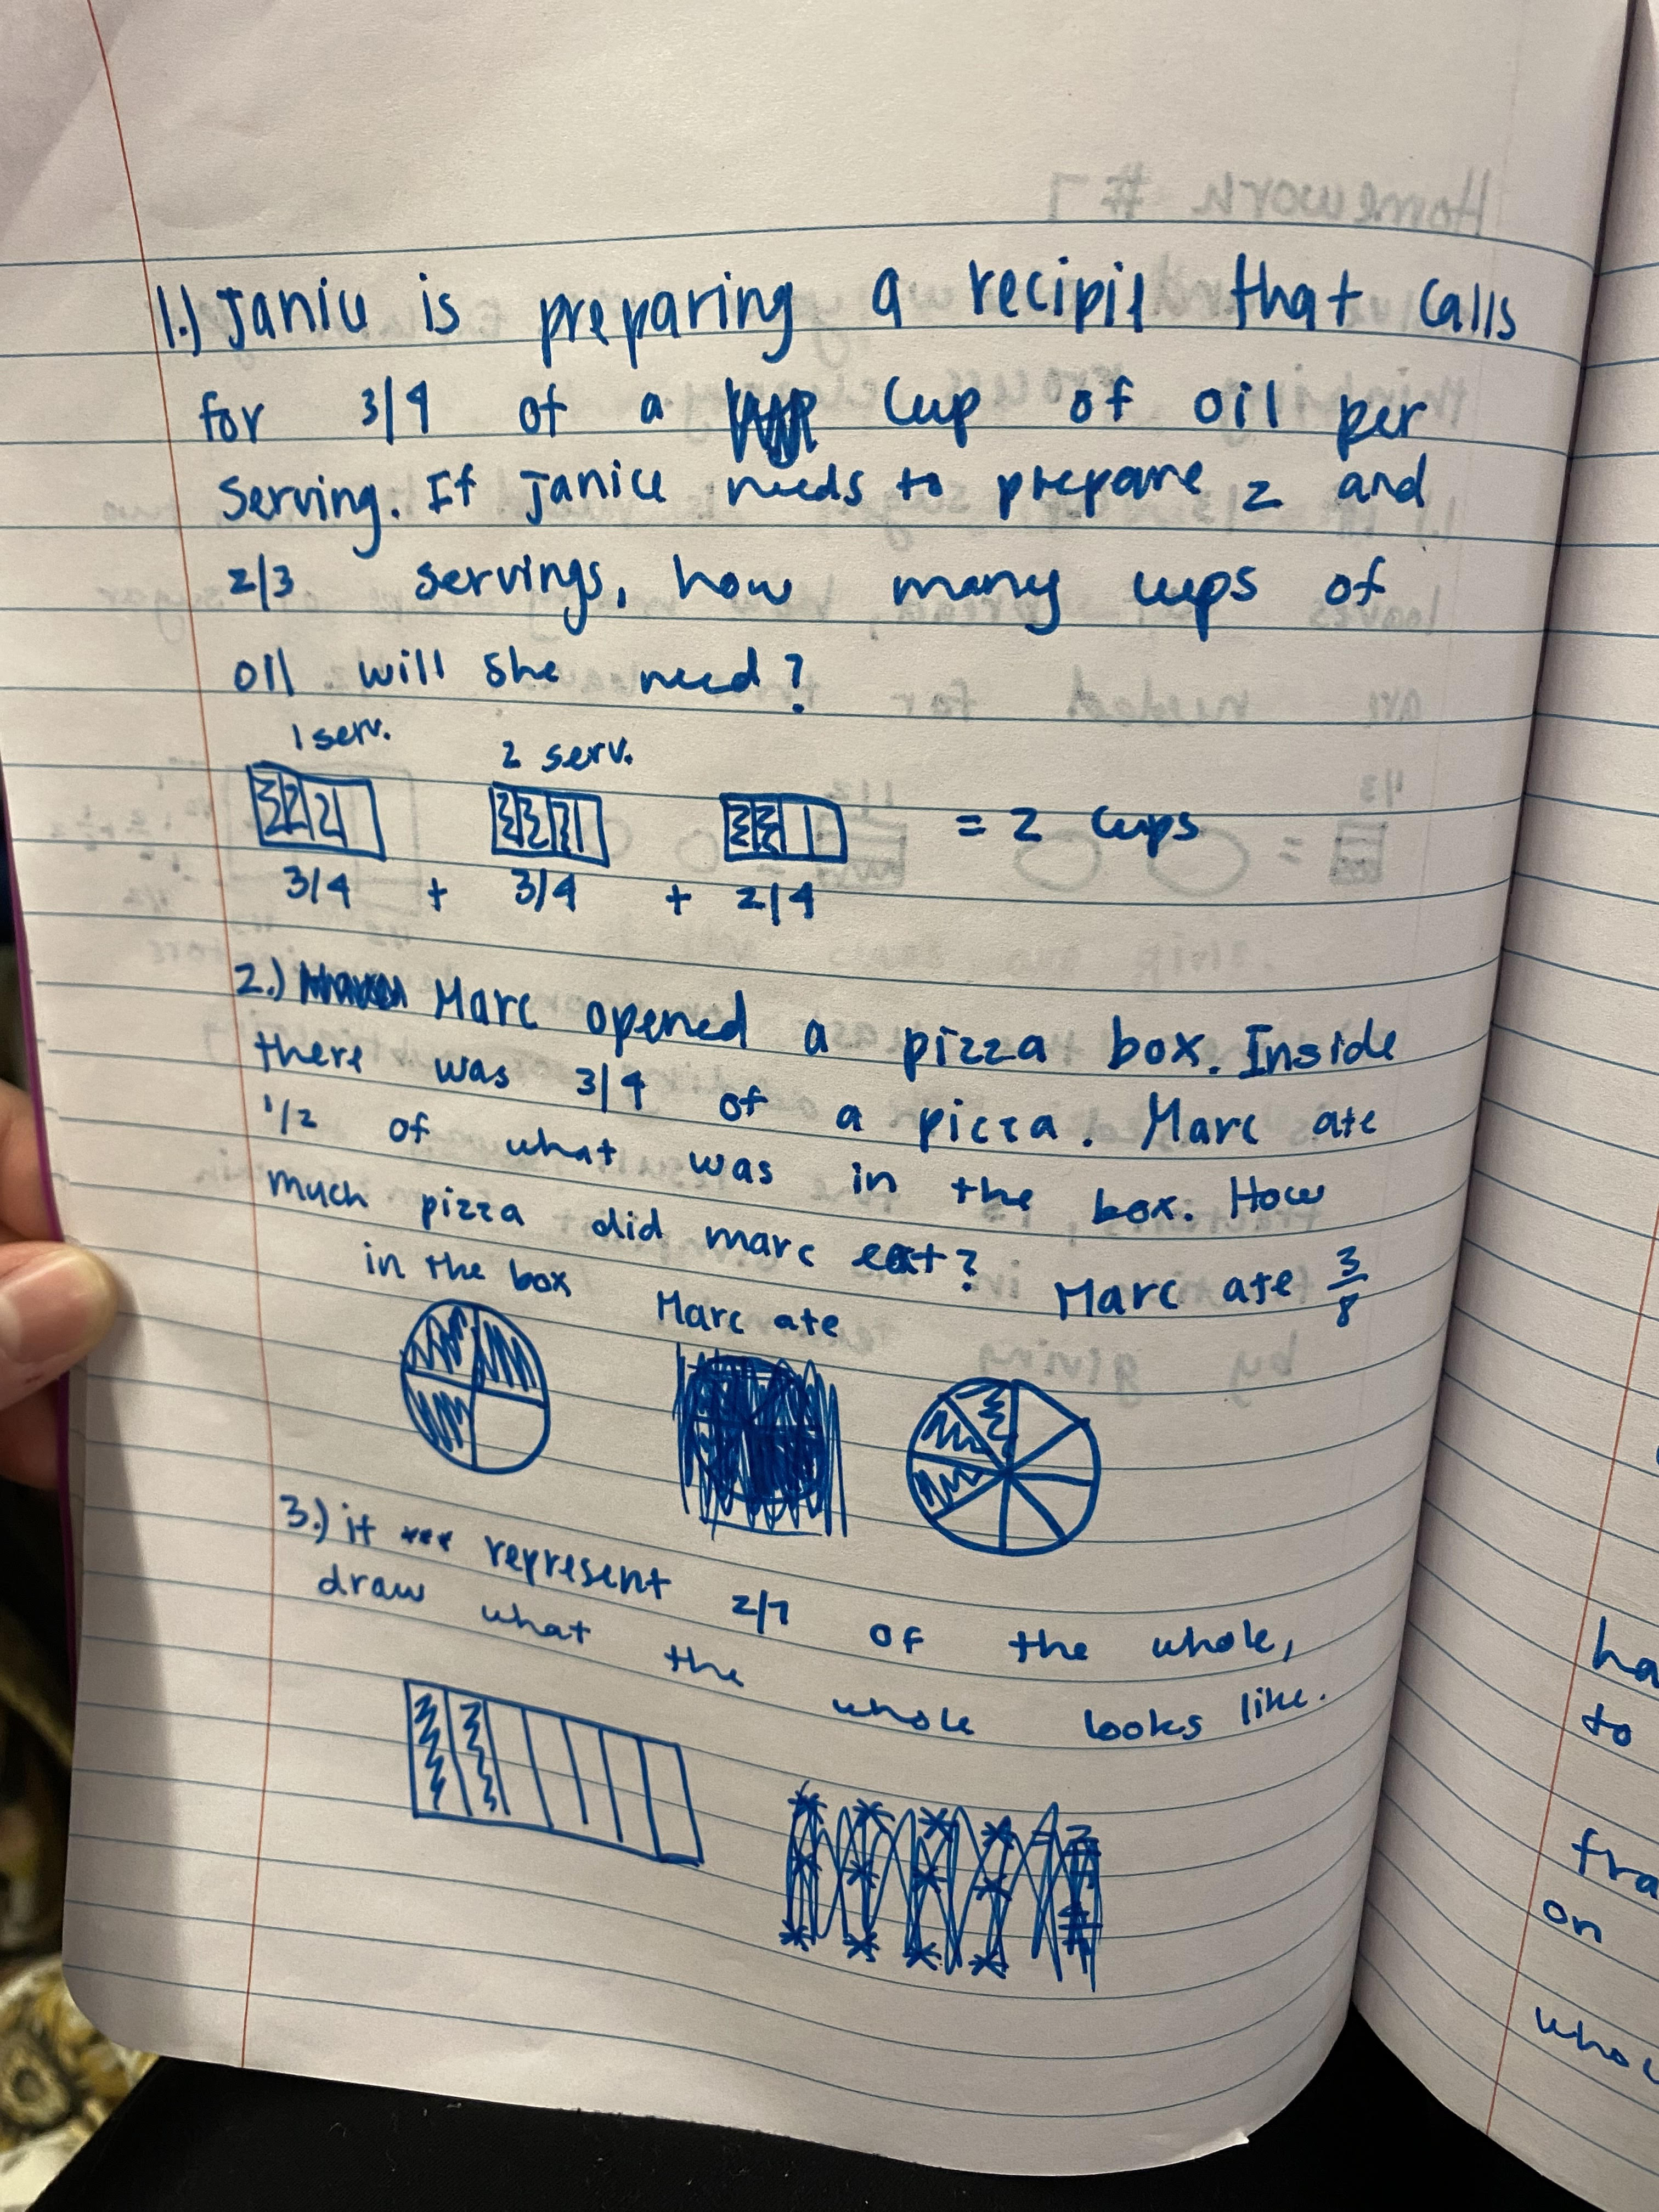 1.) Janice is preparing a recipie that calls
for 3/4 of a cup of oil per
serving. If Janice needs to prepare 2 and
2/3 servings, how many cups of
oil will she need?
1 serv.
2 serv.
= 2 cups
3/4 + 3/4 + 2/4
2.) Marc opened a pizza box. Inside
there was 3/4 of a pizza. Marc ate
1/2 of what was in the box. How
much pizza did marc eat?
Marc ate 3/8
in the box
Marc ate
3.) it represent 2/7 of the whole,
draw what the whole looks like.
ha
to
fra
on